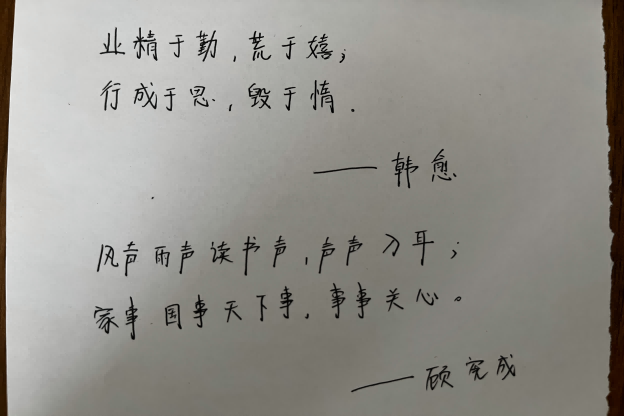 业精于勤,荒于嬉;
行成于思,毁于惰.
——韩愈
风声雨声读书声,声声入耳;
家事国事天下事,事事关心。
——顾宪成